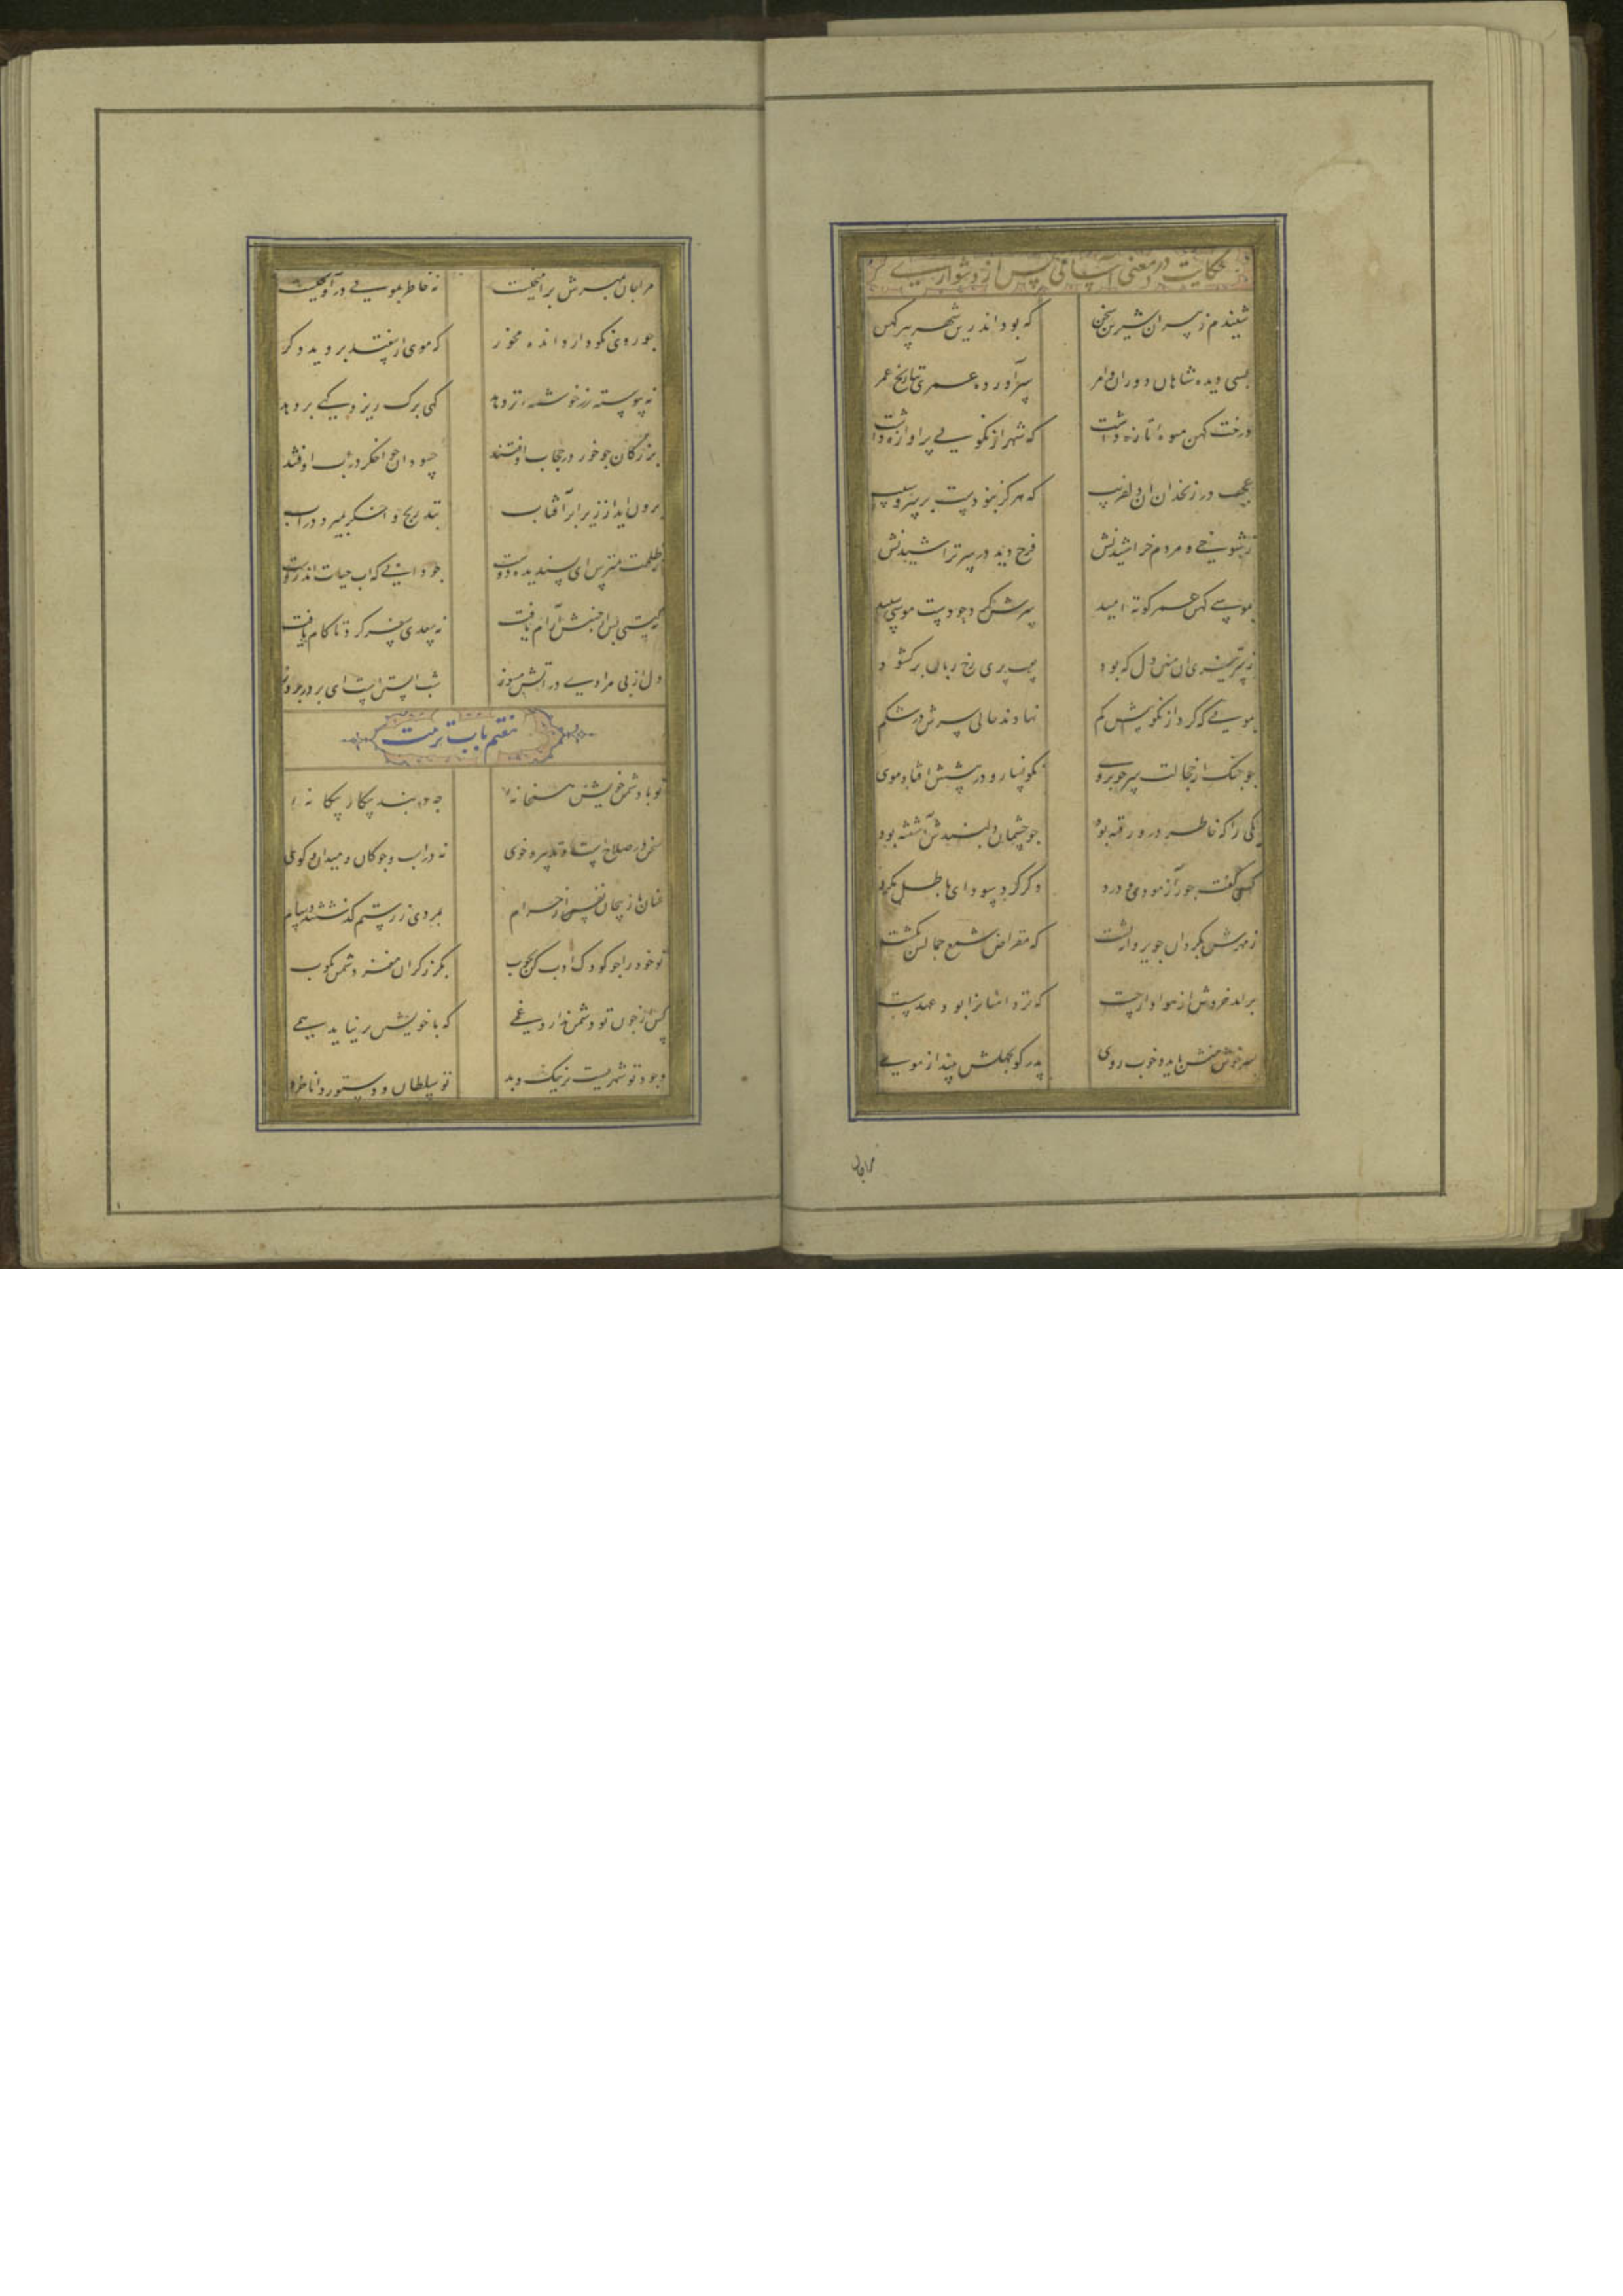 حکایت در معنی آسانی پس از دشواری
شنیدم ز پیران شیرین سخن که بود اندرین شهر پیر کهن
بسی دیده شاهان و دوران و امر سرآورده عمری ز تاریخ عمر
درخت کهن میوه تازه داشت که شهر از نکویی پر آوازه داشت
عجب در زنخدان آن دلفریب که هرگز نبودست بر سرو سیب
ز شوخی و مردم خراشیدنش فرح دید در سر تراشیدنش
بموسی کهن عمر کوته امید سرش کرد چون دست موسی سپید
ز سر تیزی آن آهنین دل که بود بعیب پری رخ زبان برکشود
بمویی که کرد از نکوییش کم نهادند حالی سرش در شکم
چو چنک از خجالت سر خوبروی نکونسار و در پیشش افتاده موی
یکی را که خاطر درو رفته بود چو چشمان دلبندش آشفته بود
کسی گفت جور آزمودی و درد دکر کرد سودای باطل مکرد
ز مهرش بکردان چو پروانه پشت که مقراض شمع جمالش بکشت
برآمد خروش از هوادار چست که تردامنانرا بود عهد سست
پسر خوش منش باید و خوب روی پدر کو بجهلش بینداز موی
مرا جان
مرا جان بمهرش برآمیخت نه خاطر بمویی درآویخت
چو روی نکو داری انده مخور که موی ار بیفتد بروید دکر
نه پیوسته رز خوشه تر دهد کهی برک ریزد کهی بر دهد
بزرکان چو خور در حجاب اوفتند حسودان چو اخکر در آب اوفتند
برون آید از زیر ابر آفتاب بتدریج و اخکر بمیرد در آب
ز ظلمت مترس ای پسندیده دوست چه دانی که آب حیات اندروست
نه کیتی پس از جنبش آرام یافت نه سعدی سفر کرد تا کام یافت
دل از بی مرادی در آتش مسوز شب آبستن است ای برادر بروز
هفتم باب تربیت
تو با دشمن نفس همخانه چه در بند پیکار بیکانه
سخن در صلاحست و تدبیر و خوی نه در اسب و چوکان و میدان و کوی
عنان باز پیچان نفس از حرام بمردی ز رستم کذشتند و سام
تو خود را چو کودک ادب کن بچوب بکرز کران مغز دشمن مکوب
کس از چون تو دشمن ندارد غمی که با خویشتن برنیاید همی
وجود تو شهریست پر نیک و بد تو سلطان و دستور دانا خرد